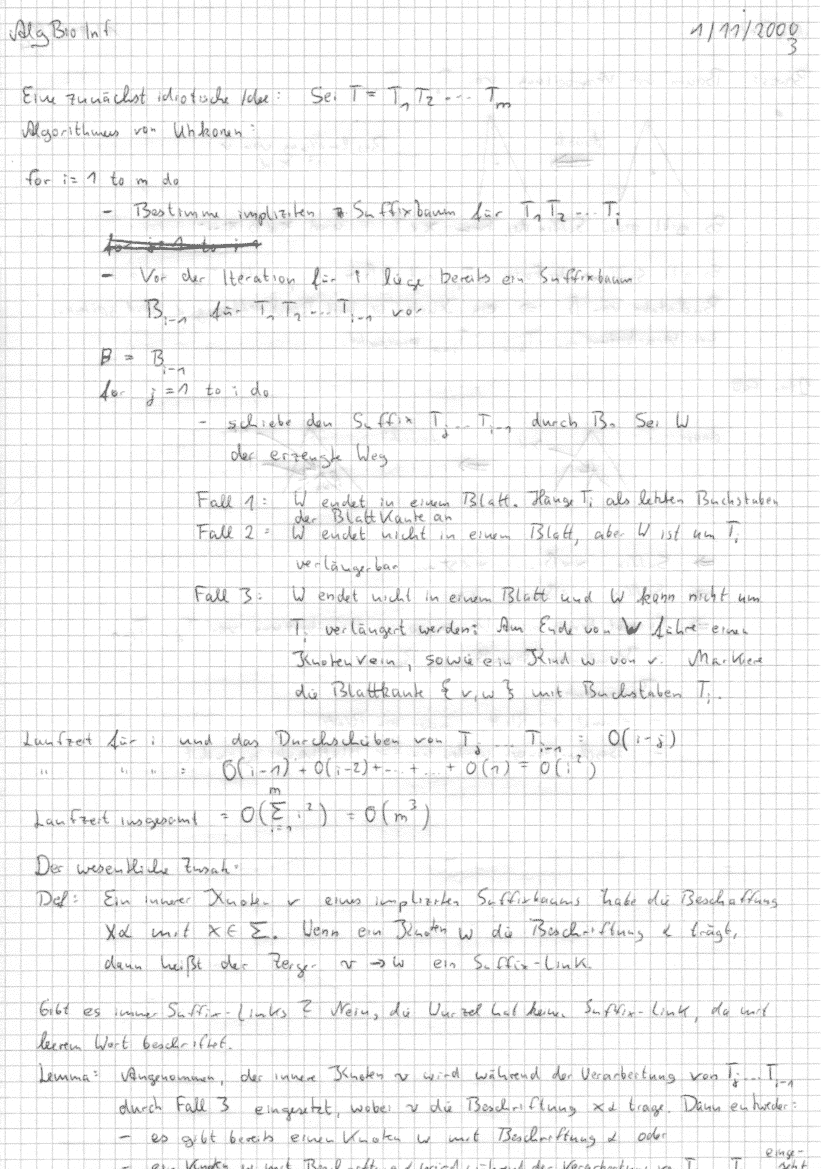 AlgBioInf 1/11/2000
3
Eine zunächst idiotische Idee: Sei T = T₁ T₂ --- Tₘ
Algorithmus von Ukkonen:
for i = 1 to m do
- Bestimme impliziten Suffixbaum für T₁ T₂ --- Tᵢ
- Vor der Iteration für i liege bereits ein Suffixbaum
Bᵢ₋₁ für T₁ T₂ --- Tᵢ₋₁ vor
B = Bᵢ₋₁
for j = 1 to i do
- schiebe den Suffix Tⱼ ... Tᵢ₋₁ durch B. Sei W
der erzeugte Weg
Fall 1: W endet in einem Blatt. Hänge Tᵢ als letzten Buchstaben
der Blattkante an
Fall 2: W endet nicht in einem Blatt, aber W ist um Tᵢ
verlängerbar
Fall 3: W endet nicht in einem Blatt und W kann nicht um
Tᵢ verlängert werden: Am Ende von W führe einen
Knoten v ein, sowie ein Kind w von v. Markiere
die Blattkante {v,w} mit Buchstaben Tᵢ.
Laufzeit für i und das Durchschieben von Tⱼ ... Tᵢ₋₁ : O(i-j)
" " " " : O(i-1) + O(i-2) + ... + ... + O(1) = O(i²)
Laufzeit insgesamt = O(∑ᵢ₌₁ᵐ i²) = O(m³)
Der wesentliche Zusatz:
Def: Ein innerer Knoten v eines impliziten Suffixbaums habe die Beschaffung
xα mit x ∈ Σ. Wenn ein Knoten w die Beschriftung α trägt,
dann heißt der Zeiger v → w ein Suffix-Link.
Gibt es immer Suffix-Links? Nein, die Wurzel hat keinen Suffix-Link, da mit
leerem Wort beschriftet.
Lemma: Angenommen, der innere Knoten v wird während der Verarbeitung von Tⱼ ... Tᵢ₋₁
durch Fall 3 eingesetzt, wobei v die Beschriftung xα trage. Dann entweder:
- es gibt bereits einen Knoten w mit Beschriftung α oder
- ein Knoten w mit Beschriftung α wird während der Verarbeitung von